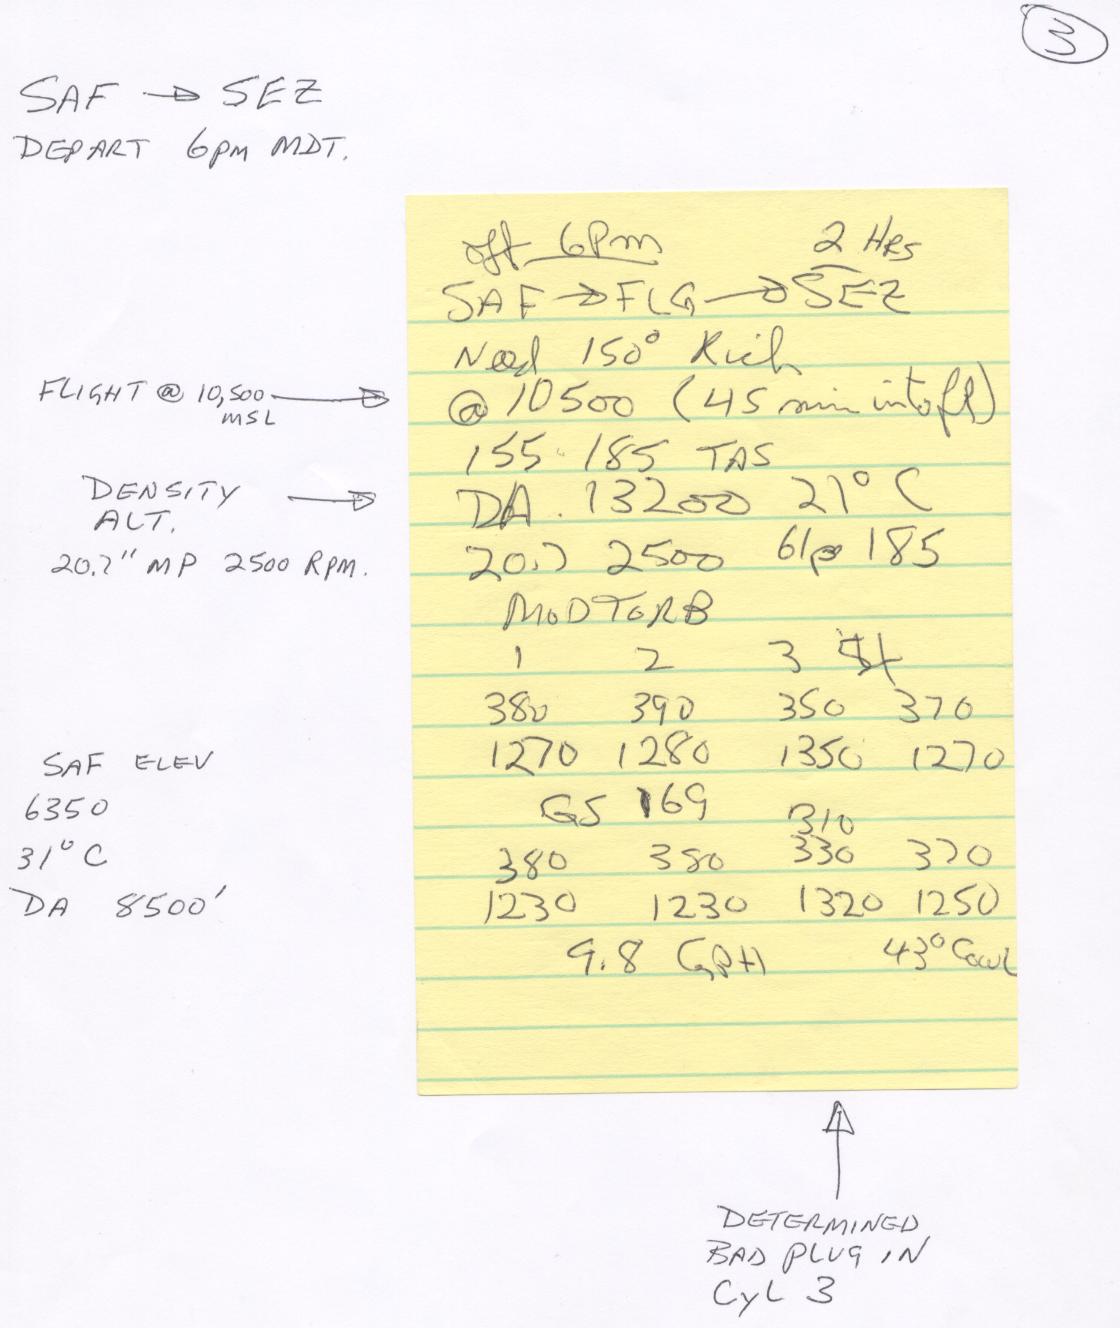 3
SAF → SEZ
DEPART 6pm MDT.
off 6pm 2 HRS
SAF → FLG → SEZ
Need 150° Rich
FLIGHT @ 10,500
MSL
@ 10500 (45 min into fl)
155-185 TAS
DENSITY
ALT.
DA. 13200 21° C
20.7" MP 2500 RPM.
20.7 2500 185
MOD TURB
1 2 3 4
380 390 350 370
1270 1280 1350 1270
SAF ELEV
6350
31° C
DA 8500'
GS 169
310
380 380 330 370
1230 1230 1320 1250
9.8 GPH 43° Cowl
DETERMINED
BAD PLUG IN
CYL 3